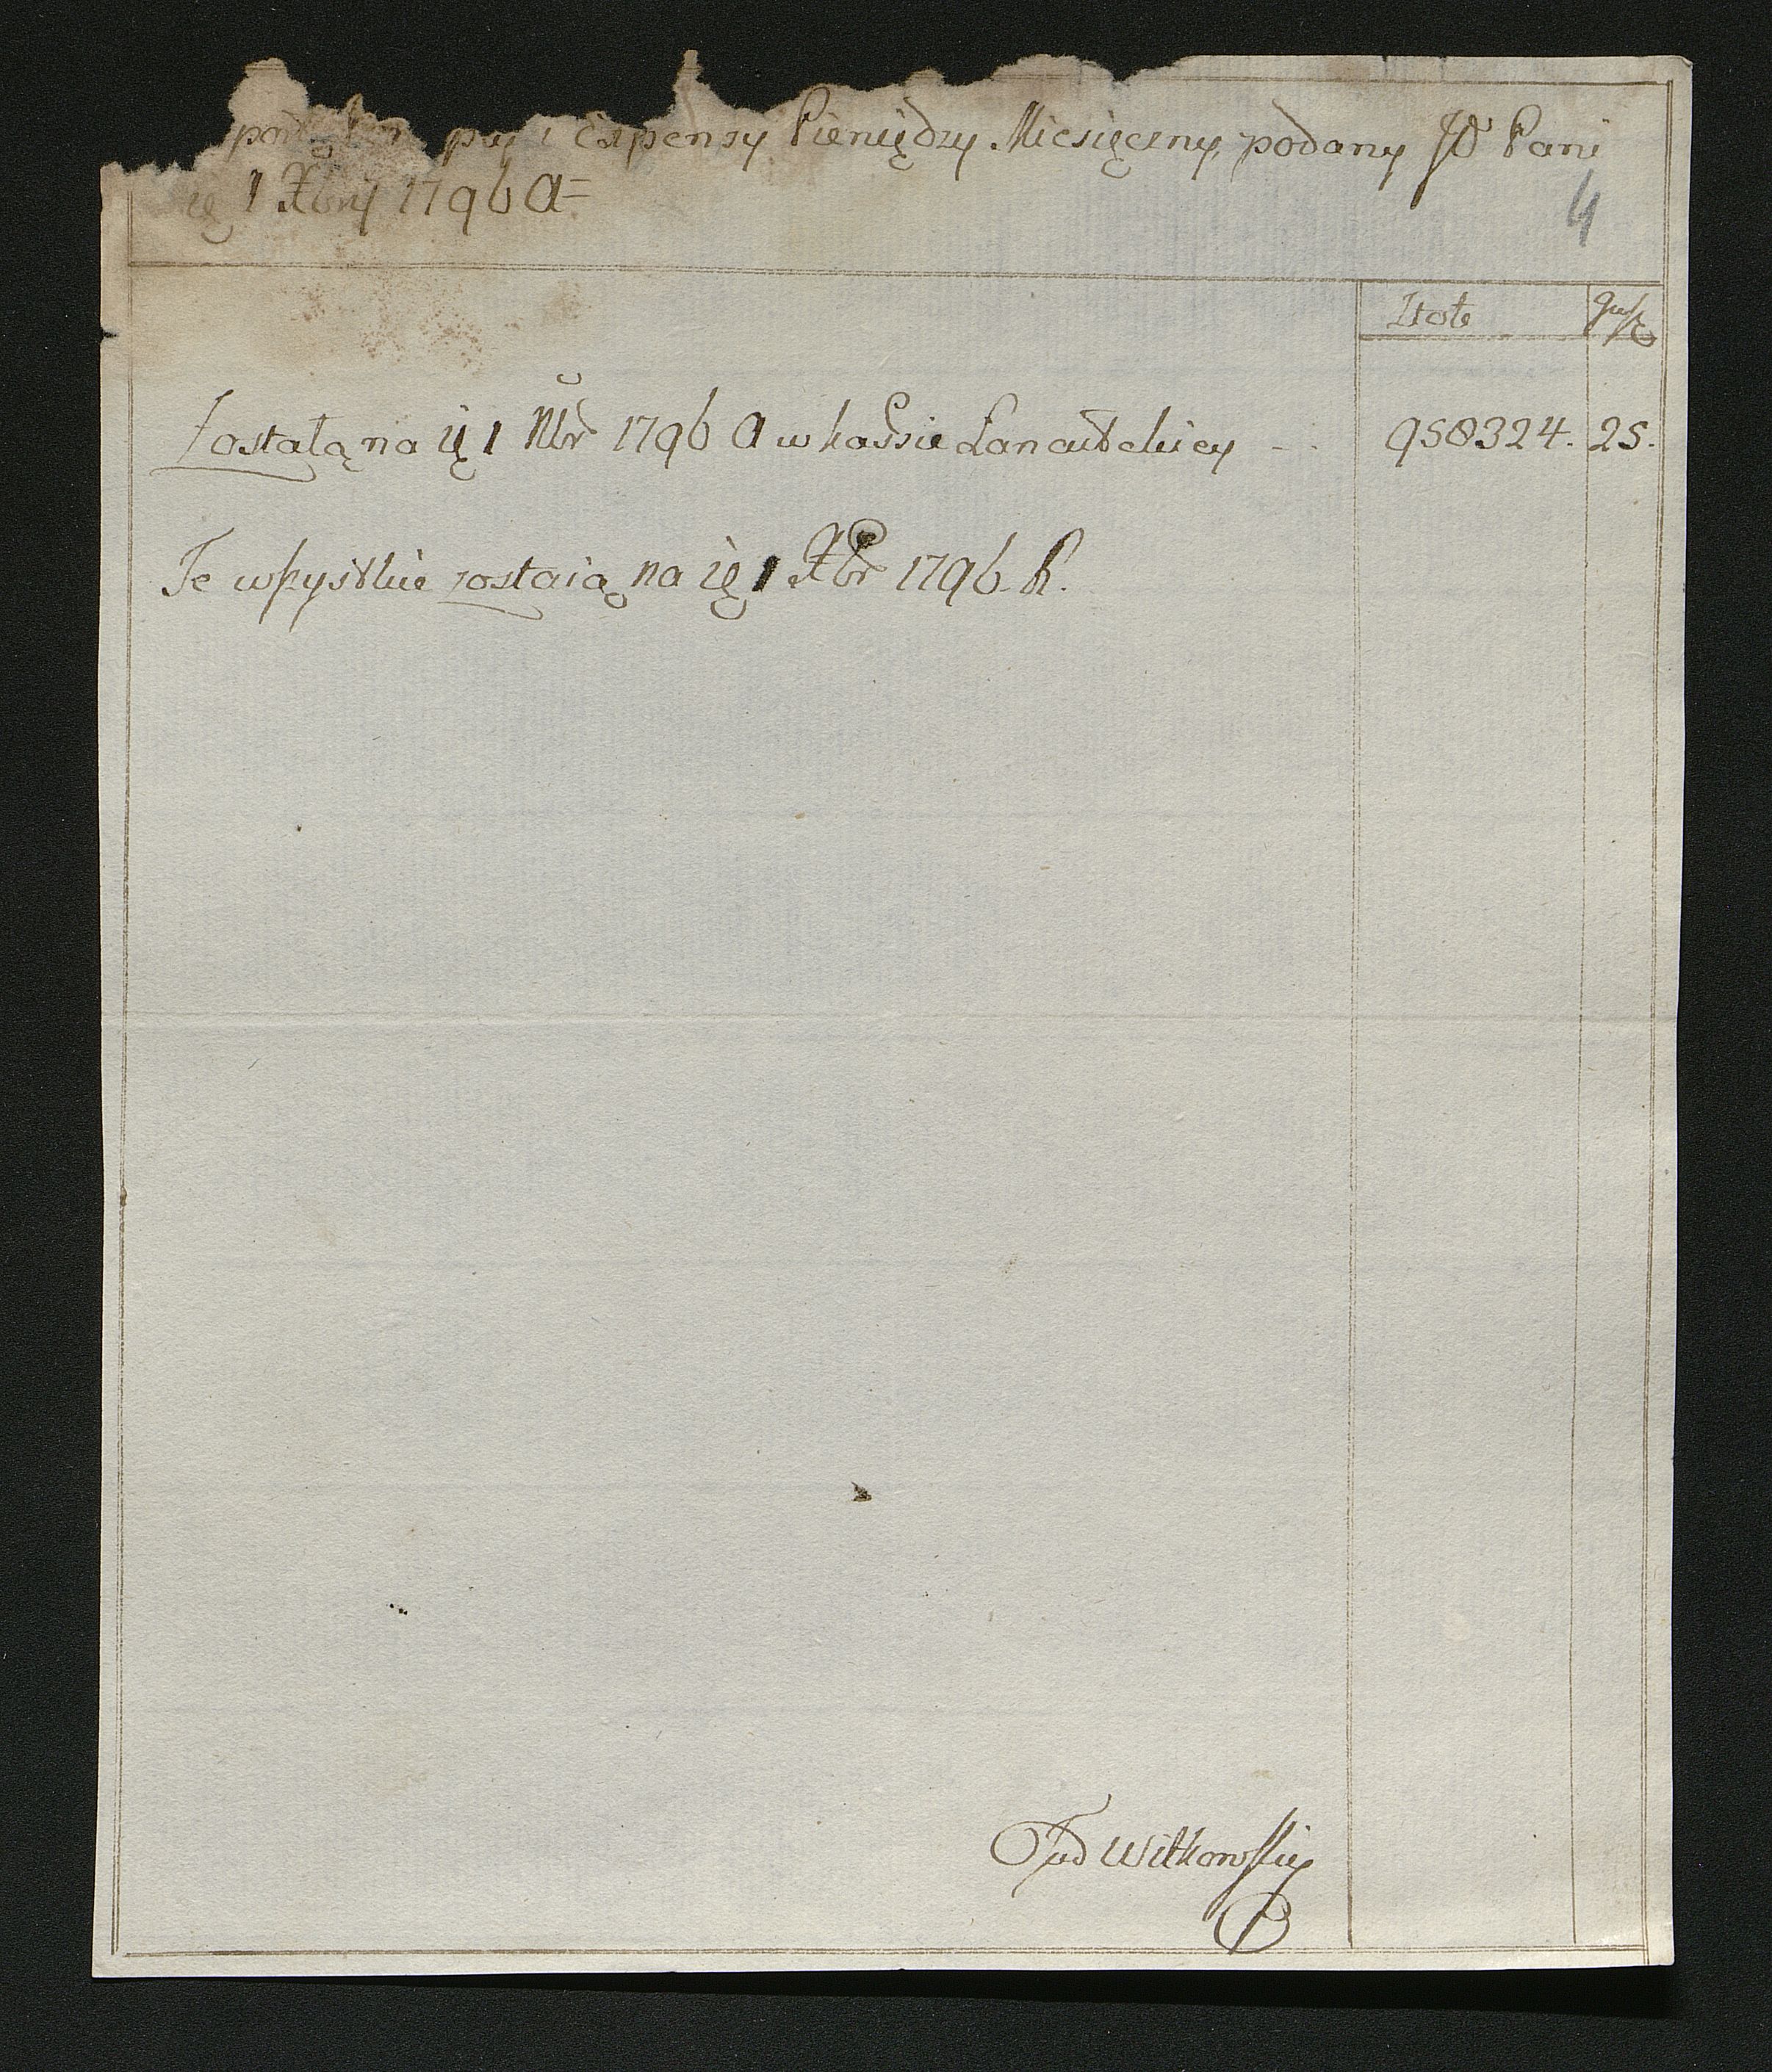 i Expensy Pieniędzy Miesięczny, podany JO Pani
ię 1 Xbry 1796 A=
4
Złote
Zostałą na ię 1 Nbr 1796 A w kassie Łancutskiey
958324. 25.
Te wszystkie zostaią na ię 1 Xbr 1796. R.
Tad Witkowskij